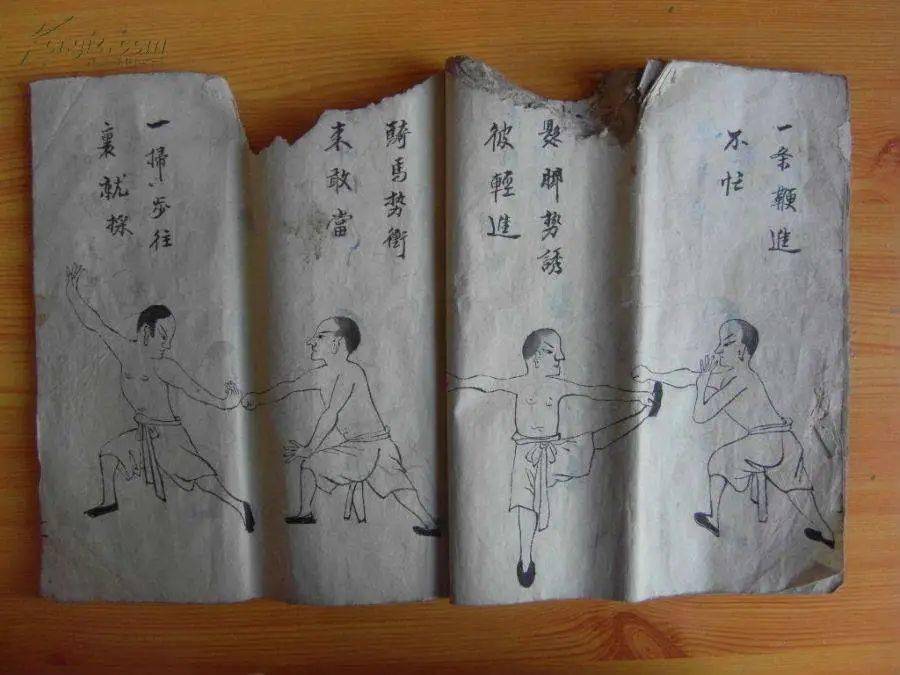 一条鞭進
不忙
懸脚勢誘
彼輕進
騎馬勢衝
来敢當
一掃〻步往
裏就採